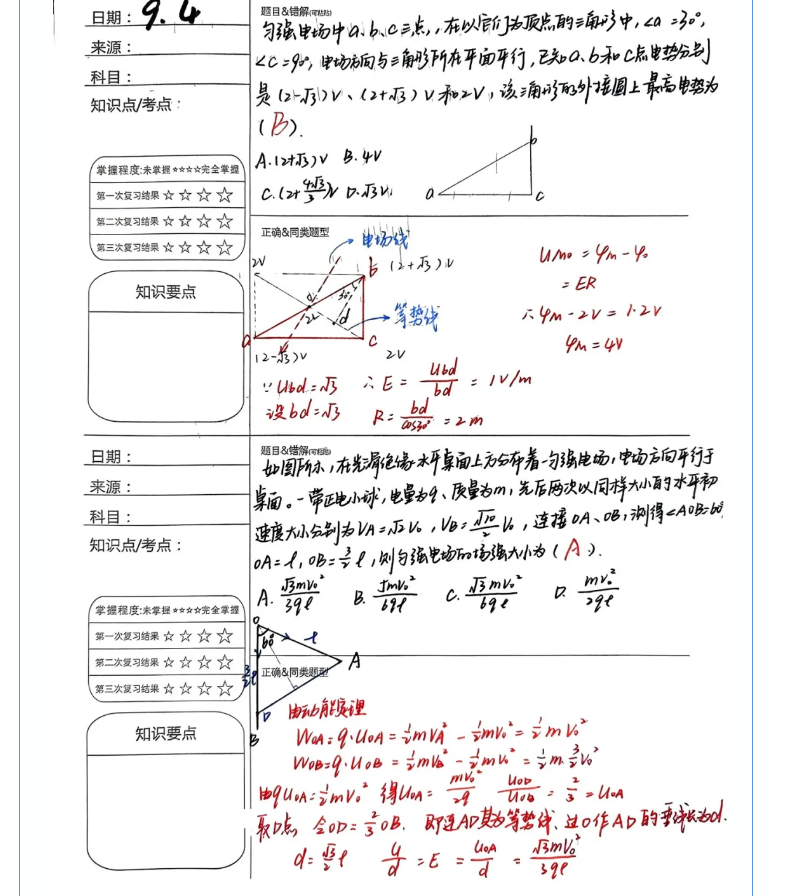 日期：9.4
来源：
科目：
知识点/考点：
掌握程度:未掌握☆☆☆☆完全掌握
第一次复习结果 ☆ ☆ ☆ ☆
第二次复习结果 ☆ ☆ ☆ ☆
第三次复习结果 ☆ ☆ ☆ ☆
知识要点
题目&错解(可粘贴)
匀强电场中a、b、c三点，在以它们为顶点的三角形中，∠a=30°，
∠c=90°，电场方向与三角形所在平面平行，已知a、b和c点电势分别
是(2-√3)V、(2+√3)V和2V，该三角形的外接圆上最高电势为
(B).
A.(2+√3)V B.4V
C.(2+4√3/3)V D.√3V
a
b
c
正确&同类题型
电场线
2V
b (2+√3)V
30°
o
2V
d
等势线
a
c
(2-√3)V
2V
∵Ubd=√3 ∴E=Ubd/bd=1V/m
设bd=√3 R=bd/cos30°=2m
UMO=φM-φO
=ER
∴φM-2V=1·2V
φM=4V
日期：
来源：
科目：
知识点/考点：
掌握程度:未掌握☆☆☆☆完全掌握
第一次复习结果 ☆ ☆ ☆ ☆
第二次复习结果 ☆ ☆ ☆ ☆
第三次复习结果 ☆ ☆ ☆ ☆
知识要点
题目&错解(可粘贴)
如图所示，在光滑绝缘水平桌面上方分布着一匀强电场，电场方向平行于
桌面。一带正电小球，电量为q、质量为m，先后两次以同样大小的水平初
速度大小分别为VA=√2V₀，VB=√10/2 V₀，连接OA、OB，测得∠AOB=60°
OA=l，OB=3/2 l，则匀强电场的场强大小为(A).
A. √3mv₀²/3ql B. 5mv₀²/6ql C. √3mv₀²/6ql D. mv₀²/2ql
O
60°
l
A
3/2 l
D
B
正确&同类题型
由动能定理
WOA=q·UOA=½mVA²-½mv₀²=½mV₀²
WOB=q·UOB=½mVB²-½mV₀²=½m·3/2V₀²
由qUOA=½mv₀² 得UOA=mv₀²/2q UOD/UOB=2/3=UOA
取D点 令OD=2/3OB. 即连AD其为等势线.过O作AD的垂线长为d.
d=√3/2 l U/d=E=UOA/d=√3mv₀²/3ql